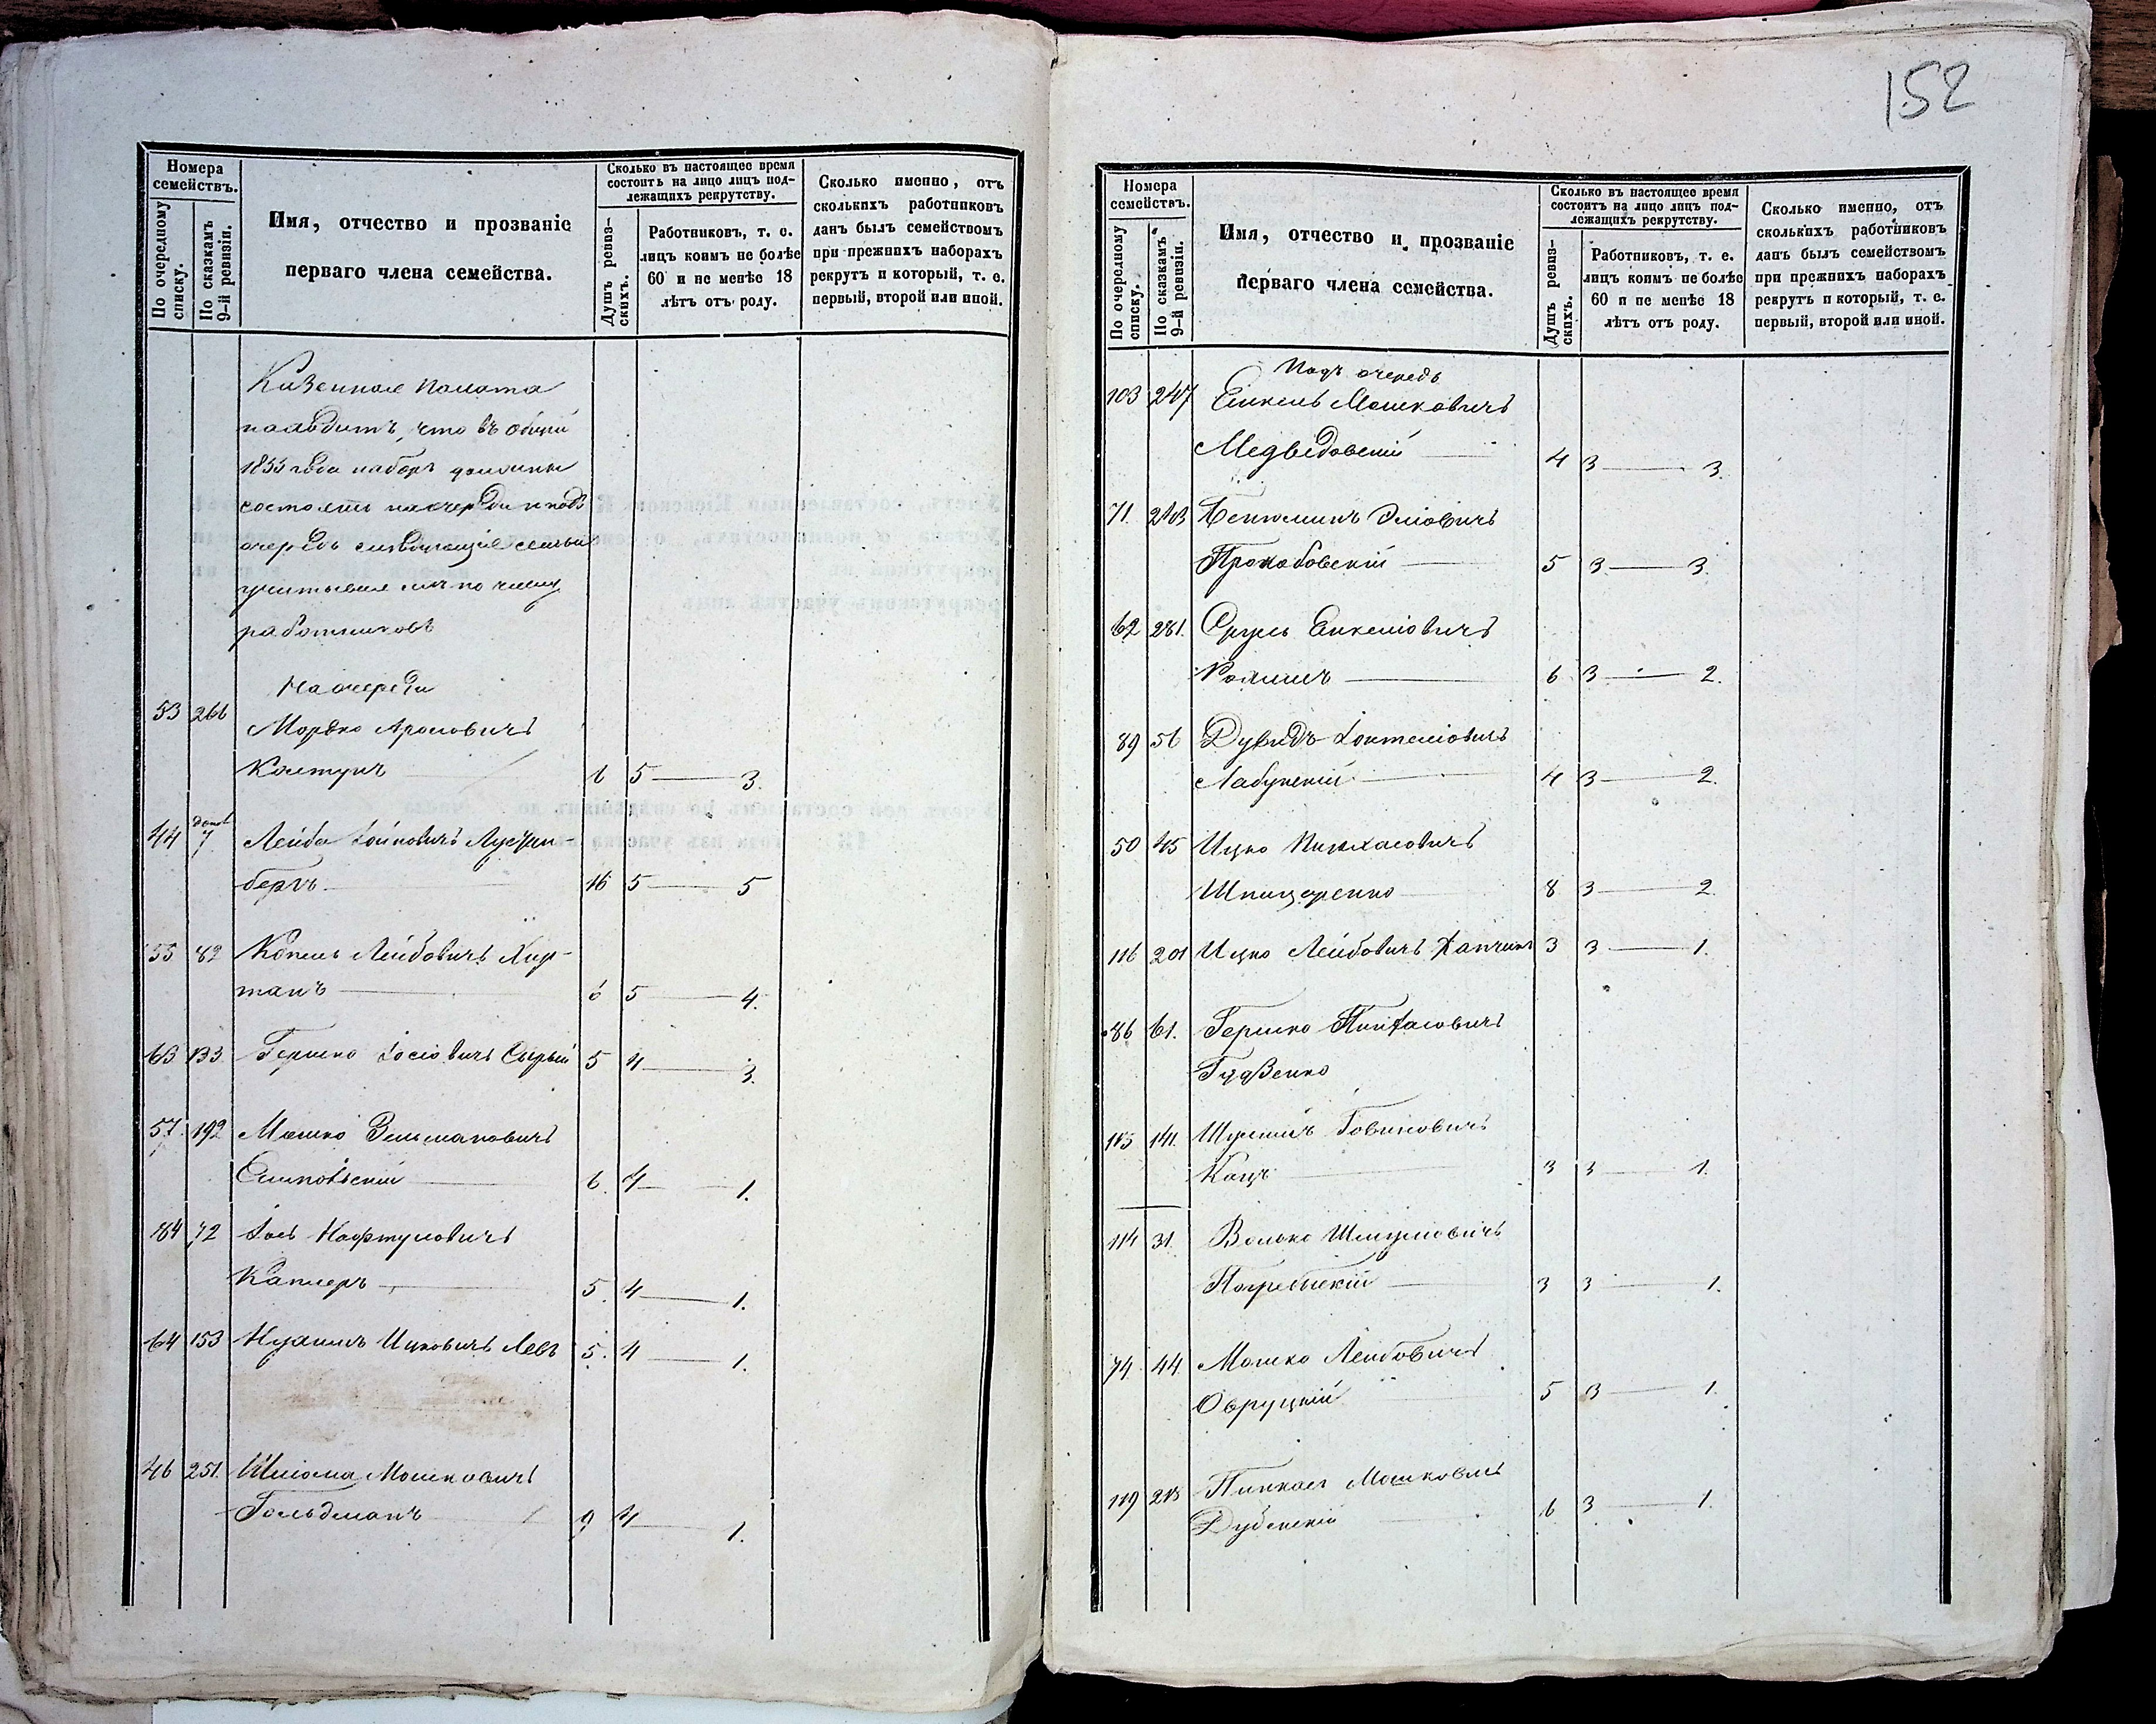 Номера семействъ.
По очередному списку.
По сказкамъ 9-й ревизіи.
Имя, отчество и прозваніе
перваго члена семейства.
Сколько въ настоящее время
состоитъ на лицо лицъ под-
лежащихъ рекрутству.
Душъ ревиз-
скихъ.
Работниковъ, т. е.
лицъ коимъ не болѣе
60 и не менѣе 18
лѣтъ отъ роду.
Сколько именно, отъ
сколькихъ работниковъ
данъ былъ семействомъ
при прежнихъ наборахъ
рекрутъ и который, т. е.
первый, второй или иной.
Казенная Палата
находитъ, что въ общій
1855 года наборъ должны
состоять на очереди и подъ
очередь слѣдующіе семьи
учитывая ихъ по числу
работниковъ
На очереди
53 266 Мордко Ароновичъ
Колтунъ 6 5 — 3.
44 7 Лейба
бергъ 16 5 — 5
55 82 Копель Лейбовичъ
манъ 6 5 — 4.
63 133 Гершко Іосіовичъ Сырый 5 4 — 3.
57 192 Мошко Зельмановичъ
6. 4 — 1.
84 72 Іось Нафтуловичъ
Капперъ 5. 4 — 1.
64 153 Нухимъ Ицковичъ Левъ 5. 4 — 1.
46 251. Шліома Мошковичъ
Гольдманъ 9 4 — 1.
152
Номера семействъ.
По очередному списку.
По сказкамъ 9-й ревизіи.
Имя, отчество и прозваніе
перваго члена семейства.
Сколько въ настоящее время
состоитъ на лицо лицъ под-
лежащихъ рекрутству.
Душъ ревиз-
скихъ.
Работниковъ, т. е.
лицъ коимъ не болѣе
60 и не менѣе 18
лѣтъ отъ роду.
Сколько именно, отъ
сколькихъ работниковъ
данъ былъ семействомъ
при прежнихъ наборахъ
рекрутъ и который, т. е.
первый, второй или иной.
Подъ очередь
103 247 Еинкель Мошковичъ
Медведовскій 4 3 — 3.
71. Бенюминъ Эліовичъ
5 3 — 3.
62 281. Сруль Еинкеліовичъ
6 3 — 2.
89 56 Дувидъ
Лабунскій 4 3 — 2.
50 45 Ицко Пинхасовичъ
8 3 — 2.
116 201 Ицко Лейбовичъ 3 3 — 1.
86 61. Гершко Пинхасовичъ
Гудзенко
115 141. Говшіовичъ
Кацъ 3 3 — 1.
114 31. Волько Шмуліовичъ
Погребискій 3 3 — 1.
74. 44. Мошко Лейбовичъ
Овруцкій 5 3 — 1.
119 Пинхасъ Мошковичъ
Дубенскій 6 3 — 1.